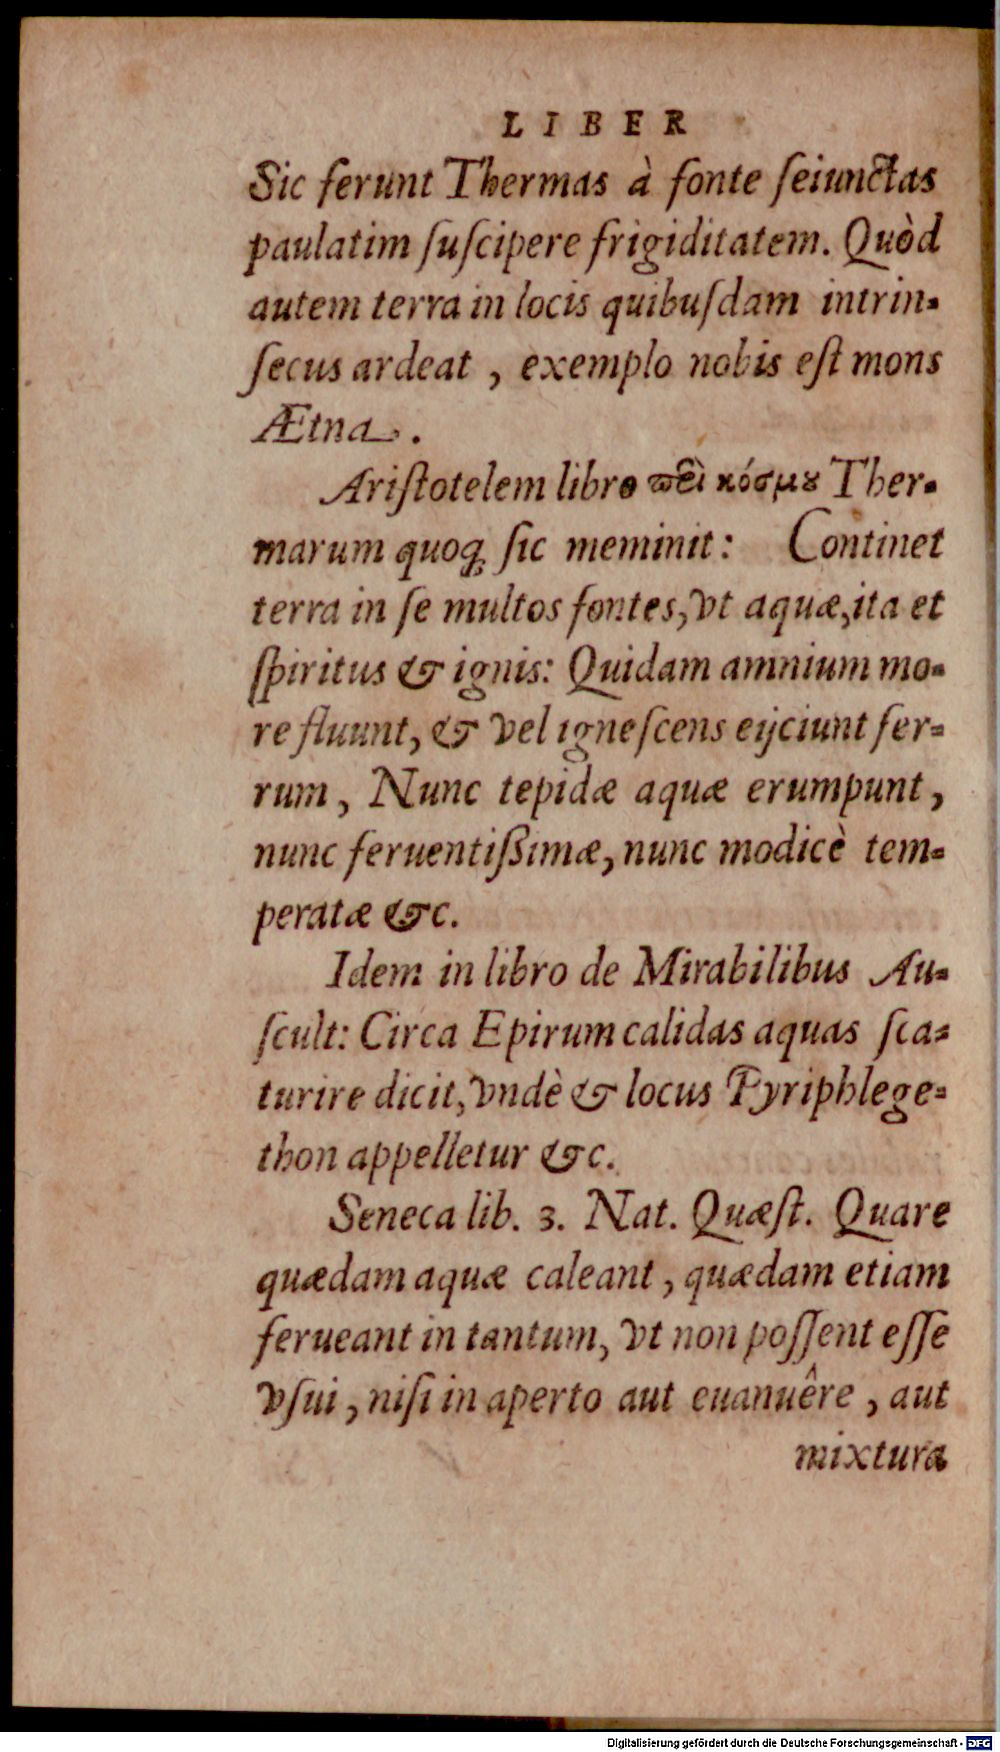 LIBER
Sic ferunt Thermas à fonte ſeiunctas
paulatim ſuſcipere frigiditatem. Quòd
autem terra in locis quibuſdam intrin-
ſecus ardeat, exemplo nobis eſt mons
Ætna.
Ariſtotelem libro πεὶ κόσμȣ Ther-
marum quoq; ſic meminit: Continet
terra in ſe multos fontes, vt aquæ, ita et
ſpiritus & ignis: Quidam amnium mo-
re fluunt, & vel igneſcens eijciunt fer-
rum, Nunc tepidæ aquæ erumpunt,
nunc feruentißimæ, nunc modicè tem-
peratæ &c.
Idem in libro de Mirabilibus Au-
ſcult: Circa Epirum calidas aquas ſca-
turire dicit, vndè & locus Pyriphlege-
thon appelletur &c.
Seneca lib. 3. Nat. Quæſt. Quare
quædam aquæ caleant, quædam etiam
ferueant in tantum, vt non poſſent eſſe
vſui, niſi in aperto aut euanuêre, aut
mixtura
Digitalisierung gefördert durch die Deutsche Forschungsgemeinschaft - DFG